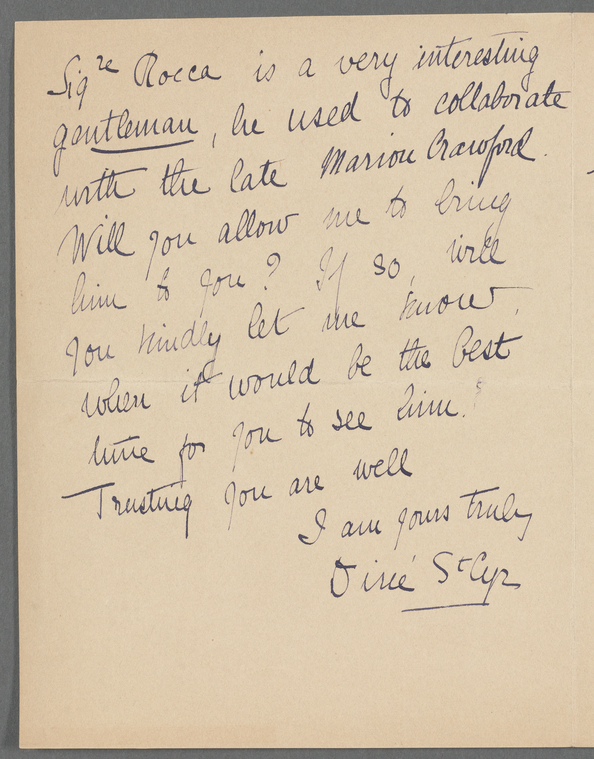 Sig^re Rocca is a very interesting
gentleman, he used to collaborate
with the late Marion Crawford.
Will you allow me to bring
him to you? If so, will
you kindly let me know,
when it would be the best
time for you to see him.
Trusting you are well
I am yours truly
Dirié St Cyr